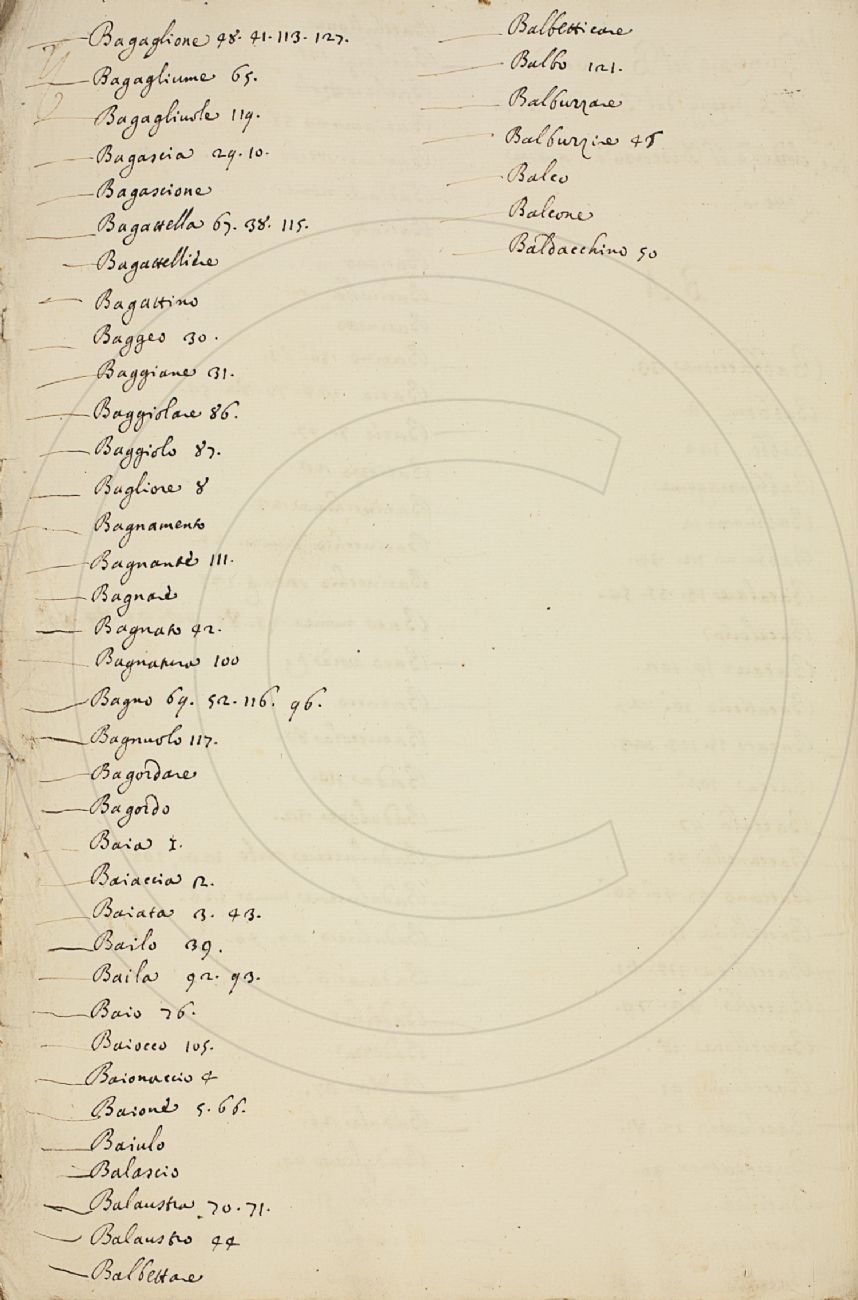 Bagaglione 48. 41. 113. 127.
Bagagliume 65.
Bagagliuole 119.
Bagascia 29. 10.
Bagascione
Bagattella 67. 38. 115.
Bagattelliere
Bagattino
Baggeo 30.
Baggiane 31.
Baggiolare 86.
Baggiolo 87.
Bagliore 8
Bagnamento
Bagnante 111.
Bagnare
Bagnato 42.
Bagnatura 100
Bagno 69. 52. 116. 96.
Bagnuolo 117.
Bagordare
Bagordo
Baia 1.
Baiaccia 12.
Baiata 3. 43.
Bailo 39.
Baila 92. 93.
Baio 76.
Baiocco 105.
Baionaccio 4
Baione 5. 66.
Baiulo
Balascio
Balaustra 70. 71.
Balaustro 44
Balbettare
Balbetticare
Balbo 121.
Balbuzzare
Balbuzzire 45
Balco
Balcone
Baldacchino 50